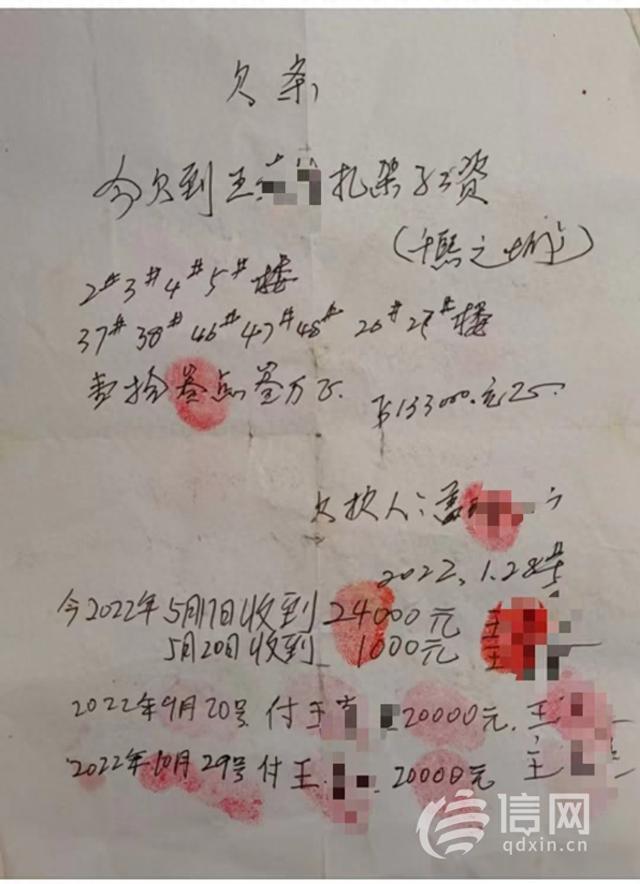 欠条
今欠到王 扎架子工资
(千熙之城)
2# 3# 4# 5# 楼
37# 38# 46# 47# 48# 26# 27# 楼
壹拾叁点叁万元. ¥133000.元
欠款人:
2022.1.28号
今2022年5月17日收到24000元 王
5月20日收到 1000元 王
2022年9月20号付王 20000元. 王
2022年10月29号付王 20000元 王
信网
qdxin.cn